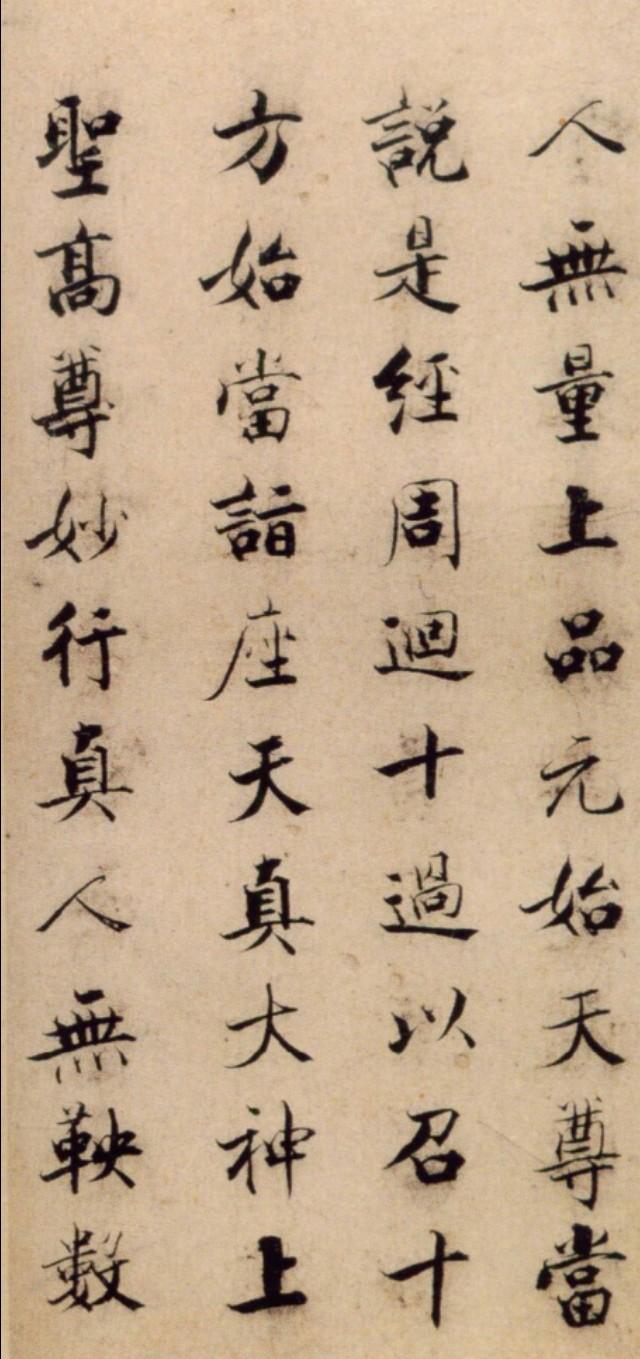 人無量上品元始天尊當
說是經周迴十過以召十
方始當詣座天真大神上
聖高尊妙行真人無鞅數